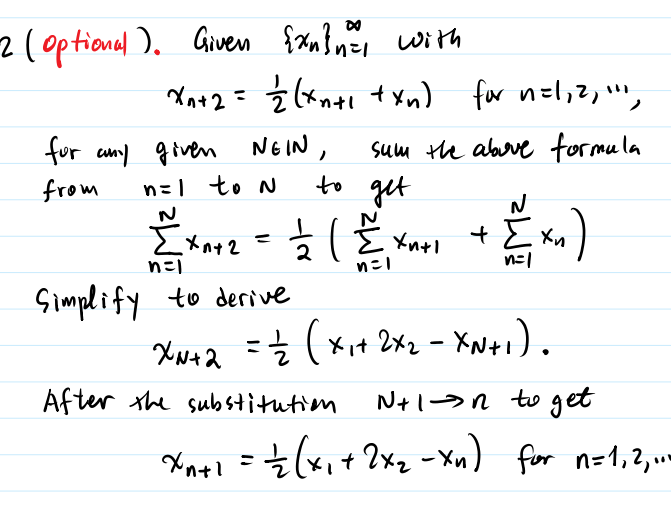 2 (Optional). Given {xₙ}ₙ₌₁^∞ with
xₙ₊₂ = 1/2 (xₙ₊₁ + xₙ) for n=1,2,...,
for any given N∈ℕ, sum the above formula
from n=1 to N to get
∑ₙ₌₁^N xₙ₊₂ = 1/2 ( ∑ₙ₌₁^N xₙ₊₁ + ∑ₙ₌₁^N xₙ )
Simplify to derive
x_{N+2} = 1/2 ( x₁ + 2x₂ − x_{N+1} ).
After the substitution N+1→n to get
xₙ₊₁ = 1/2 ( x₁ + 2x₂ − xₙ ) for n=1,2,...